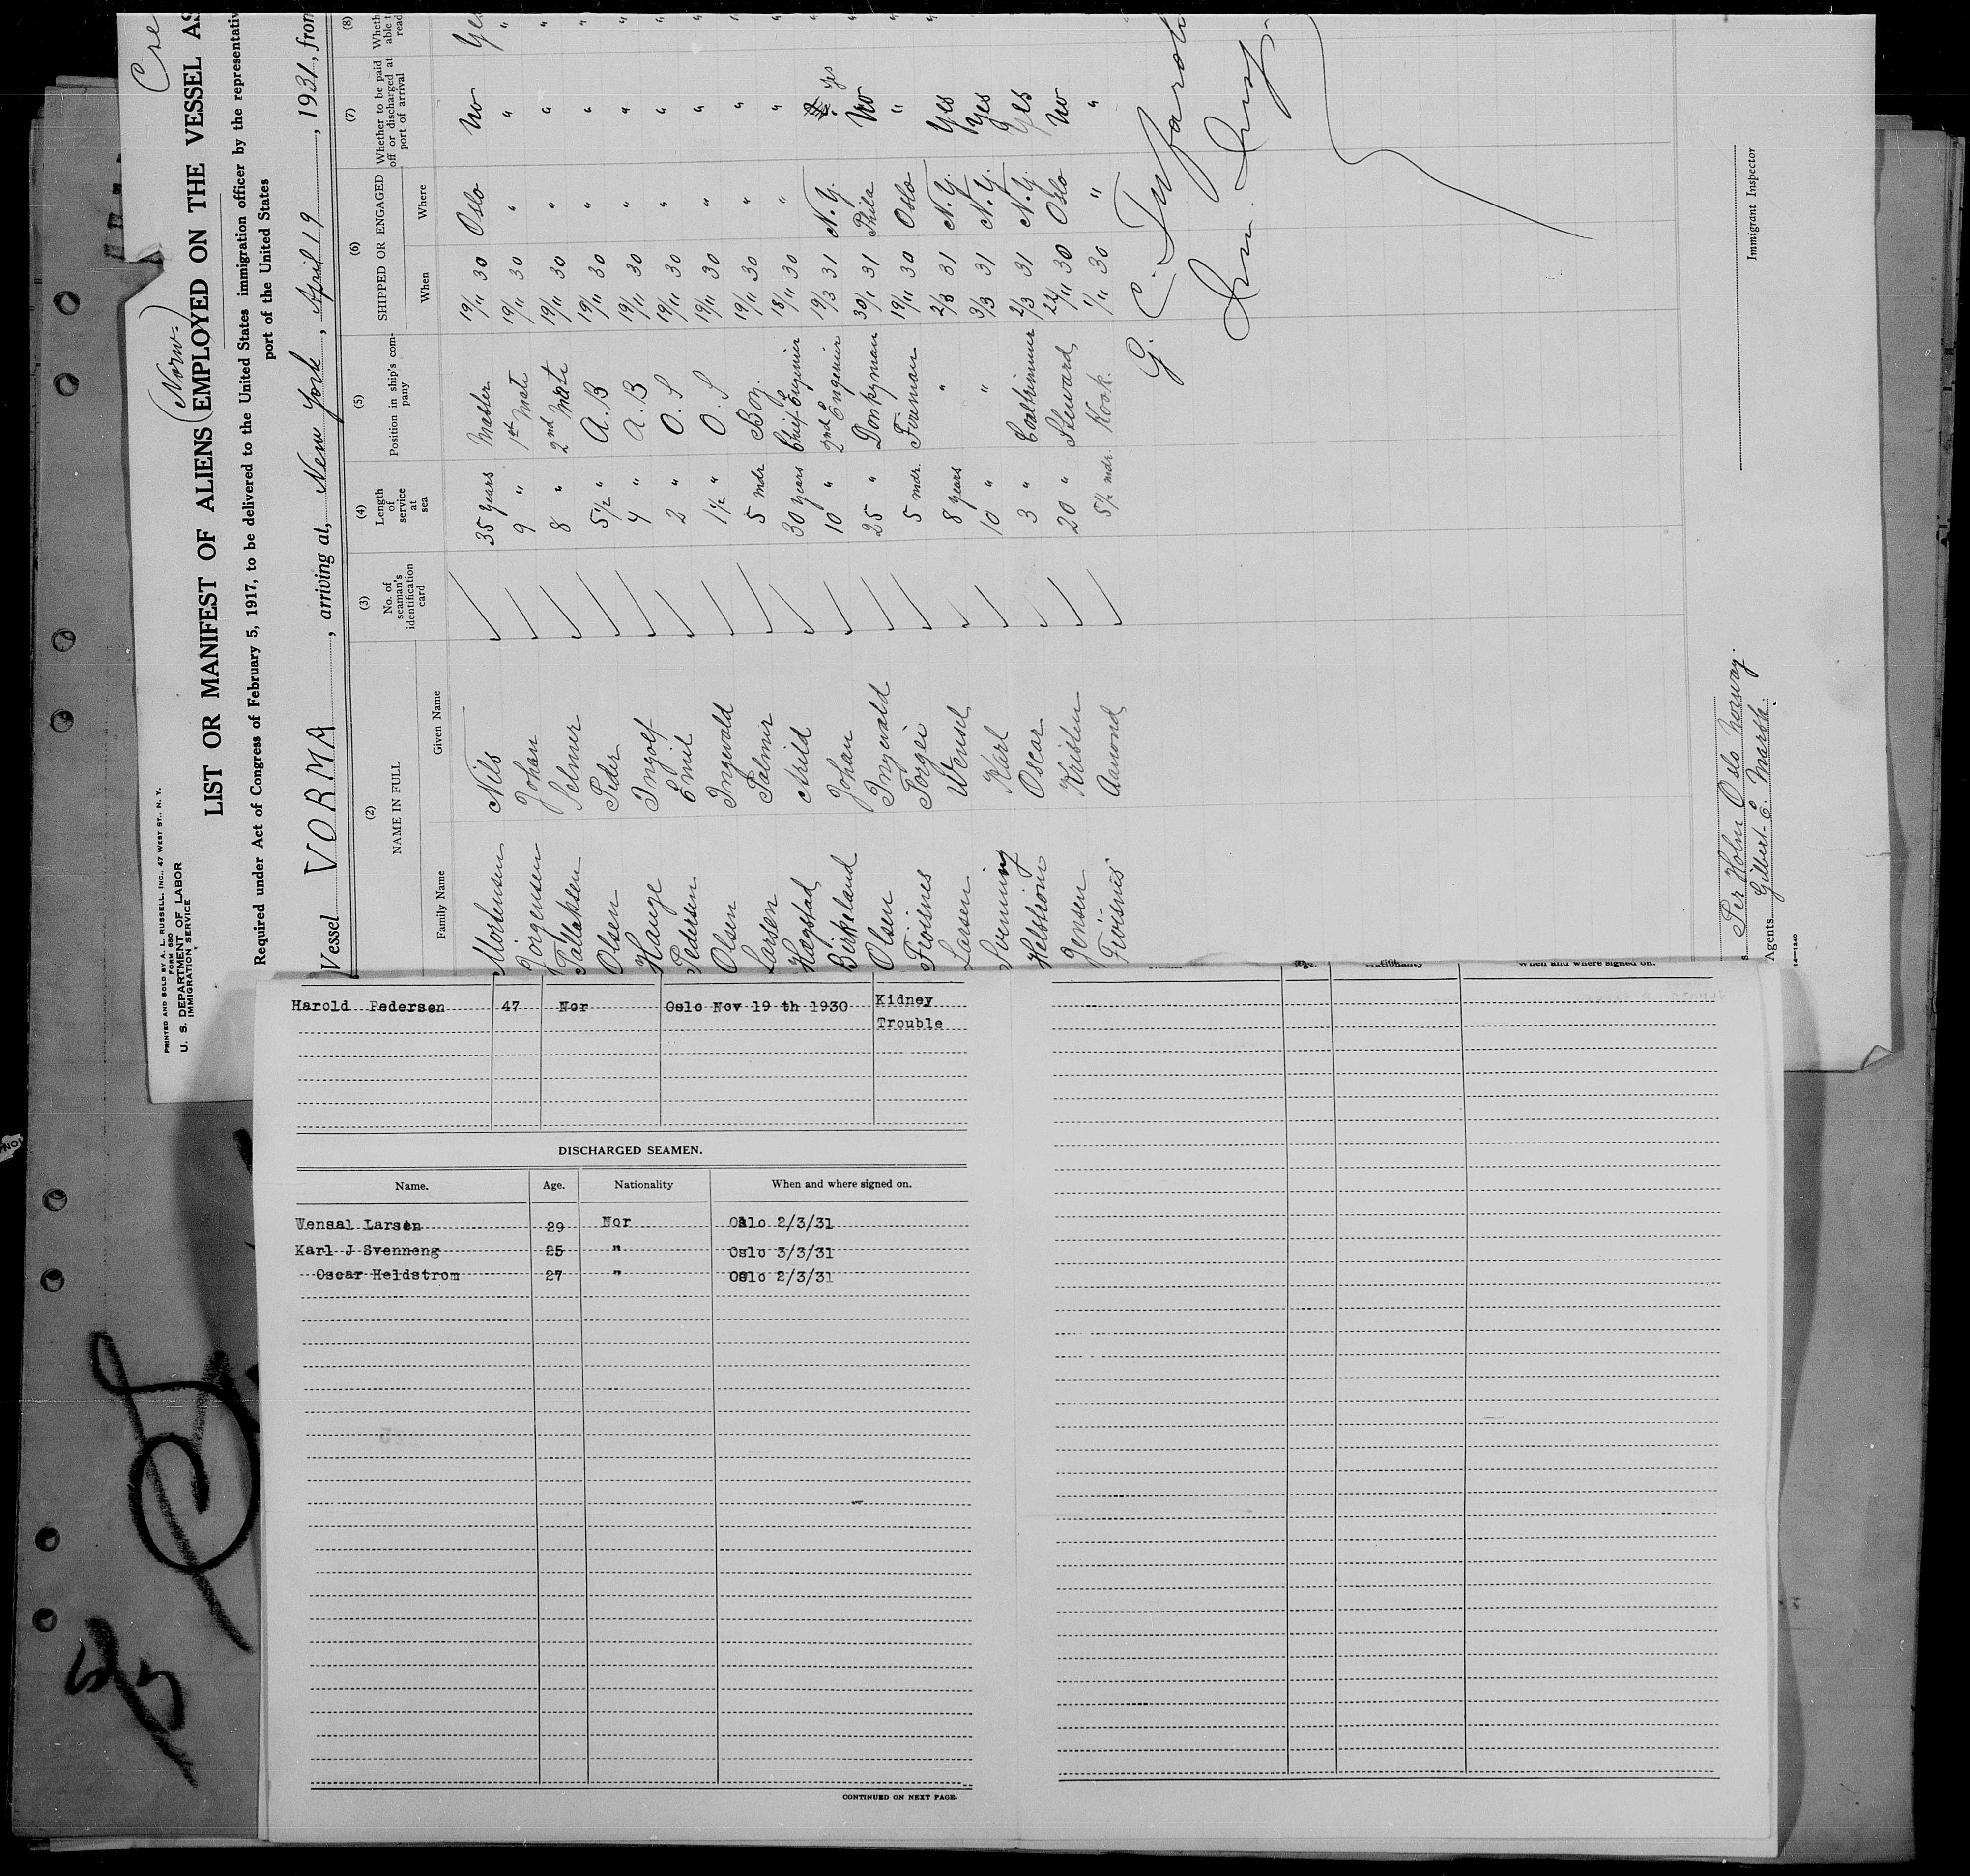 Cre
PRINTED AND SOLD BY A. L. RUSSELL, INC., 47 WEST ST., N. Y.
FORM 680
U. S. DEPARTMENT OF LABOR
IMMIGRATION SERVICE
(Norw.)
LIST OR MANIFEST OF ALIENS EMPLOYED ON THE VESSEL AS
Required under Act of Congress of February 5, 1917, to be delivered to the United States immigration officer by the representativ
port of the United States
Vessel VORMA, arriving at, New York, April 19, 1931, from
(2) (3) (4) (5) (6) (7) (8)
NAME IN FULL No. of seaman's identification card Length of service at sea Position in ship's company SHIPPED OR ENGAGED Whether to be paid off or discharged at port of arrival Wheth able t read
Family Name Given Name When Where
Mortensen Nils 35 years Master 19/11 30 Oslo No Yes
Jörgensen Johan 9 " 1st Mate 19/11 30 " " "
Tallaksen Selmer 8 " 2nd Mate 19/11 30 " " "
Olsen Peder 5½ " A.B 19/11 30 " " "
Hauge Ingolf 4 " A.B 19/11 30 " " "
Pedersen Emil 2 " O.S 19/11 30 " " "
Olsen Ingevald 1½ " O.S 19/11 30 " " "
Larsen Palmer 5 mdr. Boy. 19/11 30 " " "
Hagstad Arild 30 years Chief Enginier 18/11 30 " " "
Birkeland Johan 10 " 2nd Engenier 19/3 31 N.Y. yes "
Olsen Ingevald 25 " Donkyman 30/1 31 Phila No "
Fioisnes Torgei 5 mdr. Fireman 19/11 30 Oslo " "
Larsen Weinsel 8 years " 2/3 31 N.Y. Yes "
Svenning Karl 10 " " 3/3 31 N.Y. Yes
Helstrom Oscar 3 " Coaltrimmer 2/3 31 N.Y. Yes
Jensen Kristen 20 " Steward 22/11 30 Oslo No
Fioisnes Aamond 5½ mdr. Kook. 1/11 30 " "
G. C.
Imm. Insp.
Per Holm Oslo Norway.
Agents Gilbert E. Marsh.
14—1240
Immigrant Inspector
Harold Pedersen 47 Nor Oslo Nov 19 th 1930 Kidney
Trouble
DISCHARGED SEAMEN.
Name. Age. Nationality When and where signed on.
Wensal Larsen 29 Nor Oslo 2/3/31
Karl J Svenneng 25 " Oslo 3/3/31
Oscar Heldstrom 27 " Oslo 2/3/31
CONTINUED ON NEXT PAGE.
Nationality When and where signed on.